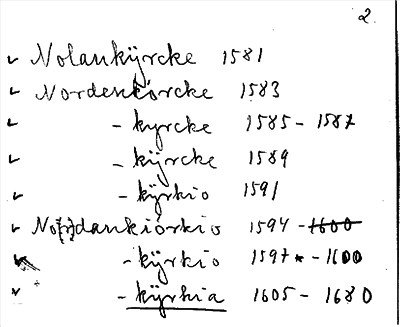 2
✓ Nolankÿrcke 1581
✓ Nordenkiörcke 1583
✓ - kyrcke 1585 - 1587
✓ - kÿrcke 1589
✓ - kÿrkio 1591
✓ No[r]dankiörkio 1594 - 1600
- kÿrkio 1597 * - 1600
✓ - kÿrkia 1605 - 1680